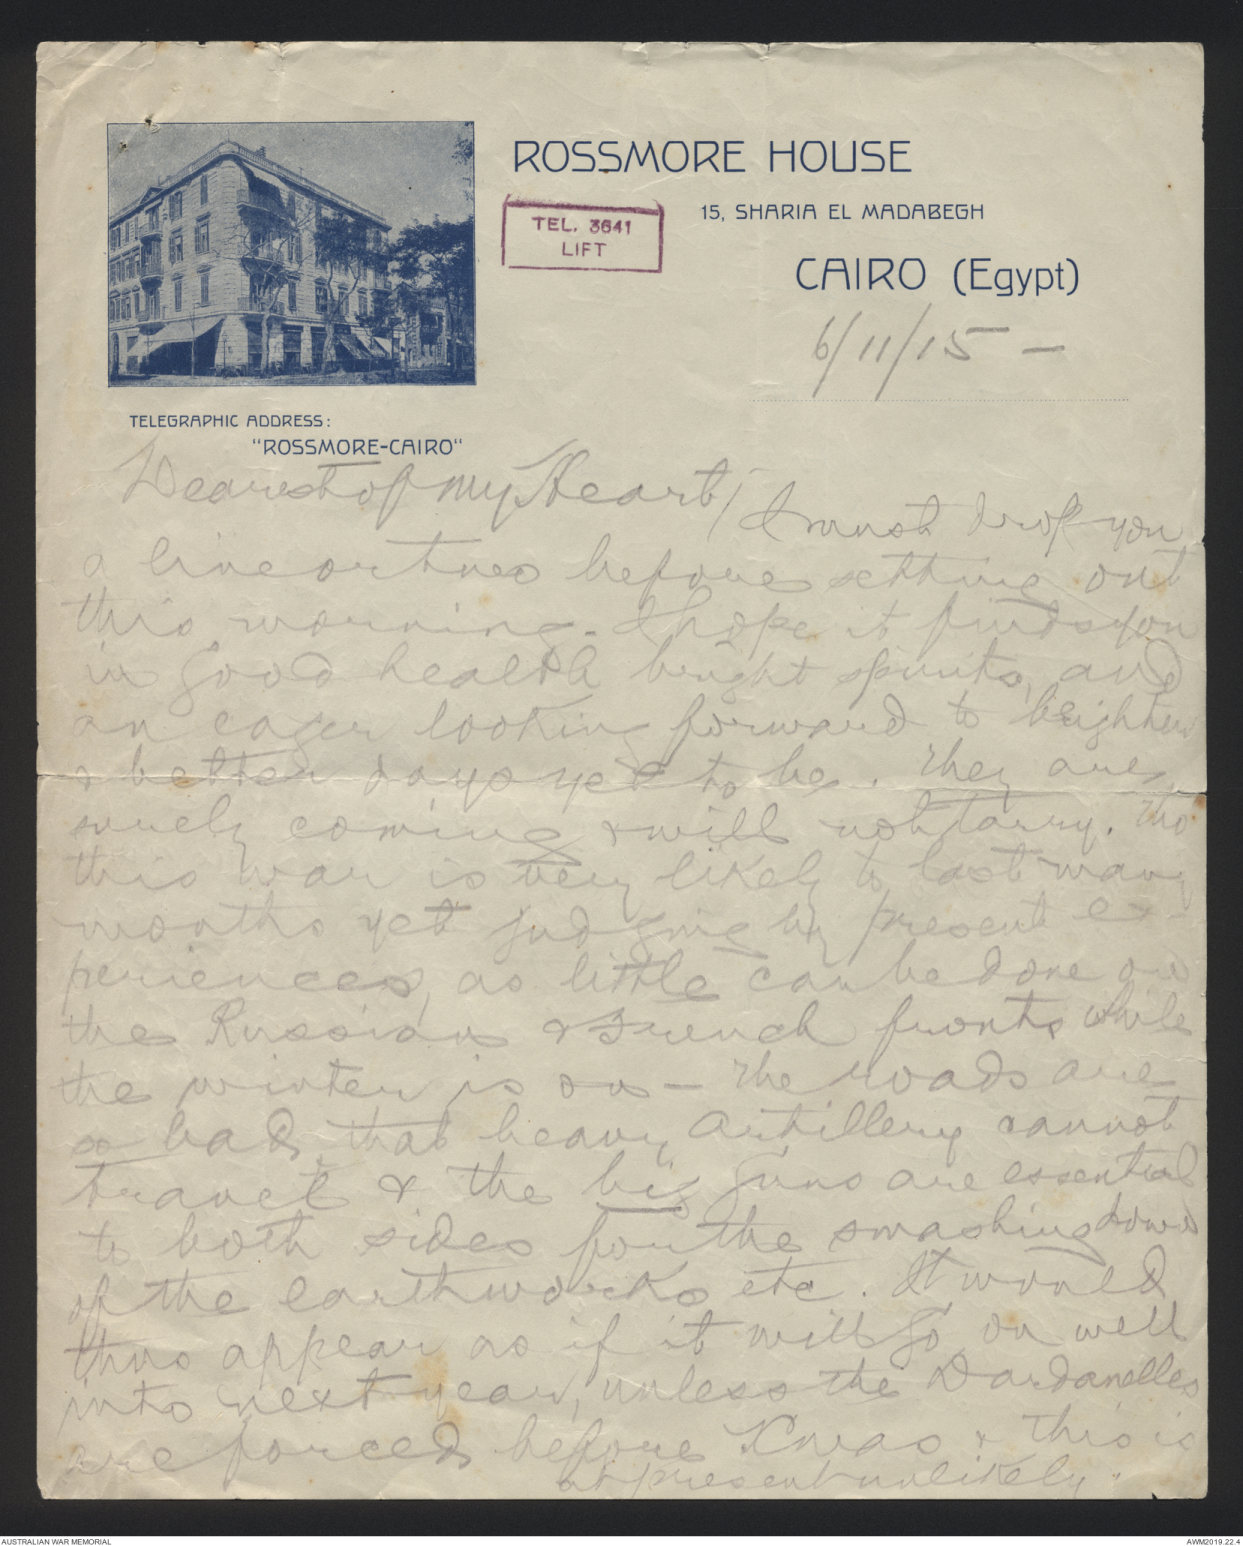 ROSSMORE HOUSE
15, SHARIA EL MADABEGH
TEL. 3641
LIFT
CAIRO (Egypt)
6/11/15 —
TELEGRAPHIC ADDRESS:
"ROSSMORE-CAIRO"
Dearest of My Heart/ I must drop you
a line or two before setting out
this morning. I hope it finds you
in good health bright spirits, and
an eager looking forward to brighter
& better days yet to be. They are
surely coming & will not tarry. Tho'
this war is very likely to last many
months yet judging by present ex-
periences, as little can be done on
the Russian & French fronts while
the winter is on – The roads are
so bad, that heavy artillery cannot
travel & the big guns are essential
to both sides for the smashing down
of the earthworks etc. It would
thus appear as if it will go on well
into next year, unless the Dardanelles
are forced before Xmas & this is
at present unlikely.
AUSTRALIAN WAR MEMORIAL
AWM2019.22.4